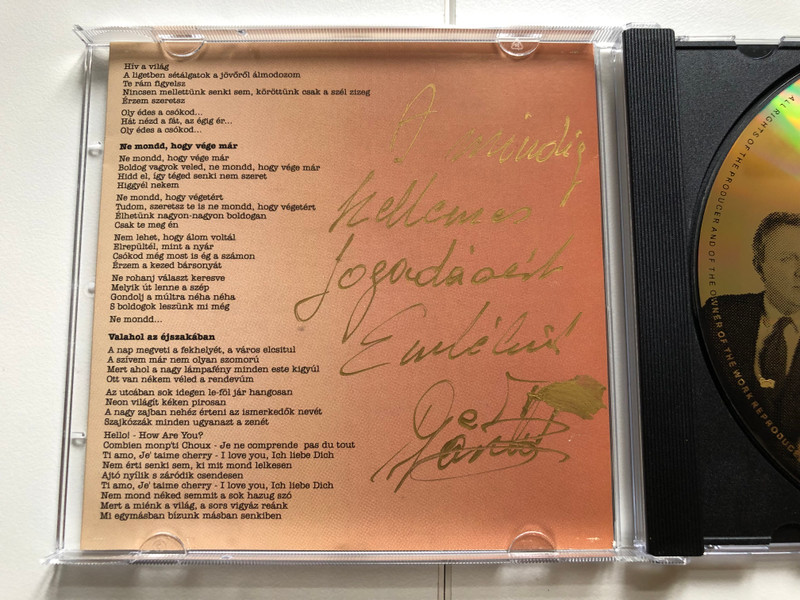 Hív a világ
A ligetben sétálgatok a jövőről álmodozom
Te rám figyelsz
Nincsen mellettünk senki sem, köröttünk csak a szél zizeg
Érzem szeretsz
Oly édes a csókod...
Hát nézd a fát, az égig ér...
Oly édes a csókod...
Ne mondd, hogy vége már
Ne mondd, hogy vége már
Boldog vagyok veled, ne mondd, hogy vége már
Hidd el, így téged senki nem szeret
Higgyél nekem
Ne mondd, hogy végetért
Tudom, szeretsz te is ne mondd, hogy végetért
Élhetünk nagyon-nagyon boldogan
Csak te meg én
Nem lehet, hogy álom voltál
Elrepültél, mint a nyár
Csókod még most is ég a számon
Érzem a kezed bársonyát
Ne rohanj választ keresve
Melyik út lenne a szép
Gondolj a múltra néha néha
S boldogok leszünk mi még
Ne mondd...
Valahol az éjszakában
A nap megveti a fekhelyét, a város elcsitul
A szívem már nem olyan szomorú
Mert ahol a nagy lámpafény minden este kigyúl
Ott van nékem véled a rendevúm
Az utcában sok idegen le-föl jár hangosan
Neon világít kéken pirosan
A nagy zajban nehéz érteni az ismerkedők nevét
Szajkózzák minden ugyanazt a zenét
Hello! - How Are You?
Combien monp'ti Choux - Je ne comprende pas du tout
Ti amo, Je' taime cherry - I love you, Ich liebe Dich
Nem érti senki sem, ki mit mond lelkesen
Ajtó nyílik s záródik csendesen
Ti amo, Je' taime cherry - I love you, Ich liebe Dich
Nem mond néked semmit a sok hazug szó
Mert a miénk a világ, a sors vigyáz reánk
Mi egymásban bízunk másban senkiben
A mindig
kellemes
fogadásért
Emlékül
ALL RIGHTS OF THE PRODUCER AND OF THE OWNER OF THE WORK REPRODUC